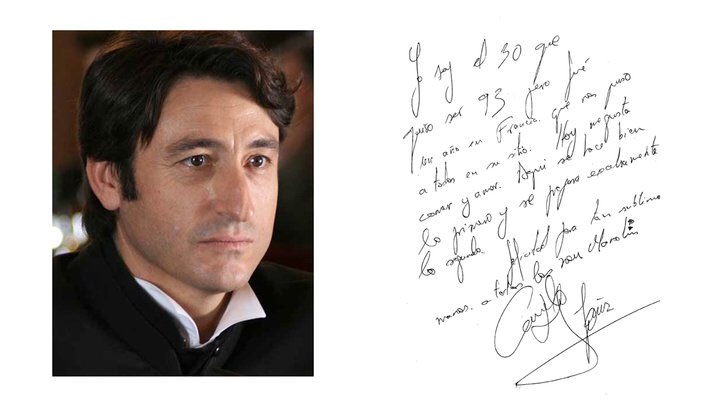 Yo soy el 30 que
quiso ser 93 pero fué
un año en Francia que nos puso
a todos en su sitio. Hoy me gusta
comer y amar. Aquí se hace bien
lo primero y se prepara exactamente
lo segundo. Felicidades por tan sublime
manos. a todos los